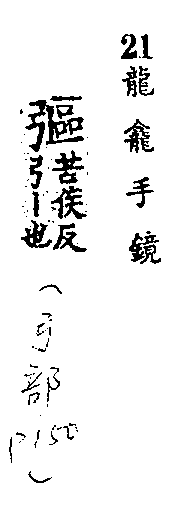 21龍龕手鏡
彄苦侯反
弓丨也
(弓部
P150)